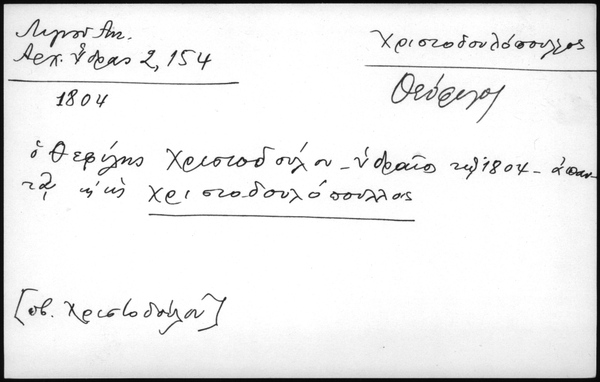 Λιγνού Αντ.
Αρχ. Ύδρας 2, 154
1804
Χριστοδουλόπουλλος
Θεόφιλος
ὁ Θεφίλης Χριστοδούλου - ὑδραῖος τοῦ 1804 - ἀπαν-
τᾶ, κ ὡς Χριστοδουλόπουλλας
[πβ. Χριστοδούλου]